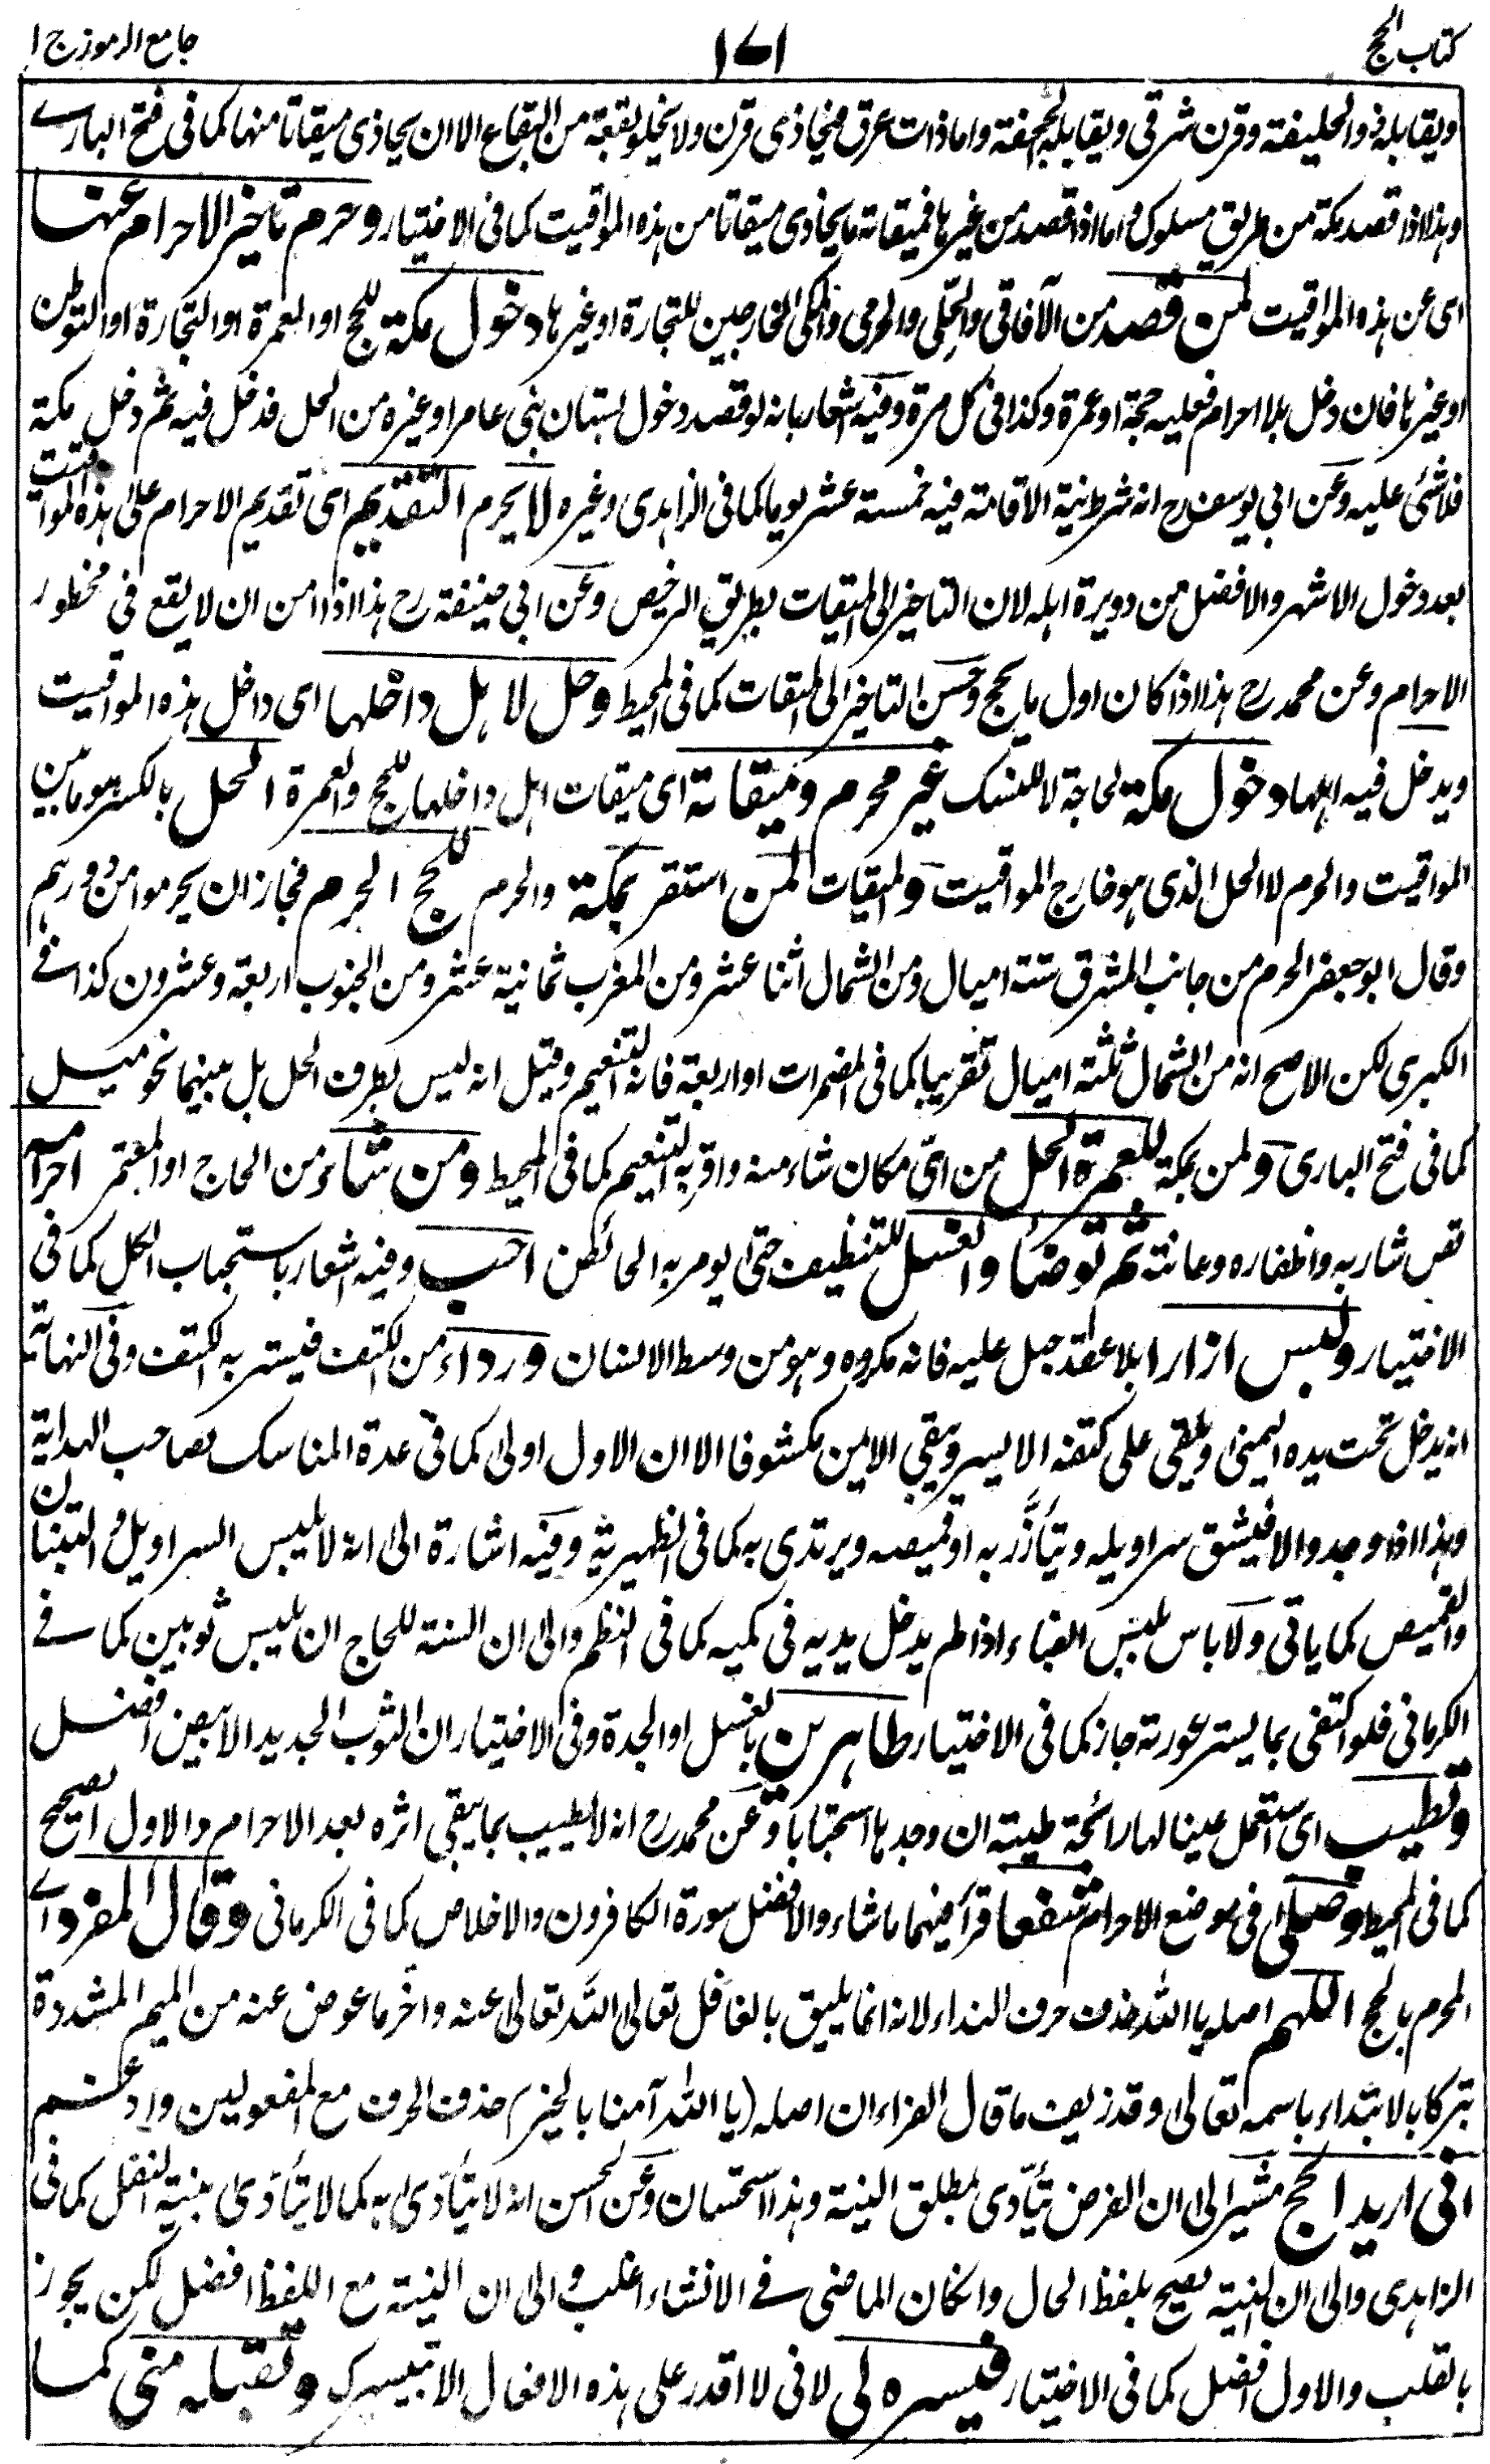 كتاب الحج ١٧١ جامع الرموز ج ١
ويقابله ذو الحليفة وقرن شرقي ويقابله الجحفة واما ذات عرق فيحاذي قرن ولا يخلو بقعة من البقاع الا ان يحاذي ميقاتا منها كما في فتح الباري
وهذا اذا قصد مكة من طريق مسلوك واما اذا قصد من غيرها فميقاته ما يحاذي ميقاتا من هذه المواقيت كما في الاختيار وحرم تاخير الاحرام عنها
اي عن هذه المواقيت لمن قصد من الآفاقي والحلي والحرمي والمكي الخارجين للتجارة او غيرها دخول مكة للحج او العمرة او التجارة او التوطن
او غيرها فان دخل بلا احرام فعليه حجة او عمرة وكذا في كل مرة وفيه اشعار بانه لو قصد دخول بستان بني عامر او غيره من الحل فدخل فيه ثم دخل مكة
فلا شئ عليه وعن ابي يوسف رح انه شرط نية الاقامة فيه خمسة عشر يوما كما في الزاهدي وغيره لا يحرم التقديم اي تقديم الاحرام على هذه المواقيت
بعد دخول الاشهر والافضل من دويرة اهله لان التاخير الى الميقات بطريق الرخيص وعن ابي حنيفة رح هذا اذا امن ان لا يقع في محظور
الاحرام وعن محمد رح هذا اذا كان اول ما يحج وحسن التاخير الى الميقات كما في المحيط وحل لاهل داخلها اي داخل هذه المواقيت
ويدخل فيه اهلها دخول مكة لحاجة لا للنسك غير محرم وميقاته اي ميقات اهل داخلها للحج والعمرة الحل بالكسر هو ما بين
المواقيت والحرم لا الحل الذي هو خارج المواقيت والميقات لمن استقر بمكة والحرم للحج الحرم فجاز ان يحرموا من دورهم
وقال ابو جعفر الحرم من جانب المشرق ستة اميال ومن الشمال اثنا عشر ومن المغرب ثمانية عشر ومن الجنوب اربعة وعشرون كذا في
الكبرى لكن الاصح انه من الشمال ثلثة اميال تقريبا كما في المضمرات او اربعة فانه التنعيم وقيل انه ليس بطرف الحل بل بينهما نحو ميل
كما في فتح الباري ولمن بمكة للعمرة الحل من اي مكان شاء منه واقربه التنعيم كما في المحيط ومن شاء من الحاج او المعتمر احرامه
قص شاربه واظفاره وعانته ثم توضأ والغسل للتنظيف حتى يومر به الحائض احب وفيه اشعار باستحباب الكل كما في
الاختيار ولبس ازارا بلا عقد حبل عليه فانه مكروه وهو من وسط الانسان ورداء من الكتف فيستر به الكتف وفي النهاية
انه يدخل تحت يده اليمنى ويلقى على كتفه الايسر ويبقى الايمن مكشوفا الا ان الاول اولى كما في عدة المناسك لصاحب الهداية
وهذا اذا وجد والا فيشق سراويله ويتأزر به او قميصه ويرتدي به كما في الظهيرية وفيه اشارة الى انه لا يلبس السراويل والتبنان
والقميص كما ياتي ولا باس بلبس القباء اذا لم يدخل يديه في كميه كما في النظم والى ان السنة للحاج ان يلبس ثوبين كما في
الكرماني فلو اكتفى بما يستر عورته جاز كما في الاختيار طاهرين بالغسل او الجدة وفي الاختيار ان الثوب الجديد الابيض افضل
وتطيب اي استعمل عينا لها رائحة طيبة ان وجدها استحبابا وعن محمد رح انه لا يطيب بما يبقى اثره بعد الاحرام والاول الصحيح
كما في المحيط وصلى في موضع الاحرام شفعا قرأ فيهما ما شاء والافضل سورة الكافرون والاخلاص كما في الكرماني وقال المفرد اي
المحرم بالحج اللهم اصله يا الله حذف حرف النداء لانه انما يليق بالغافل تعالى الله تعالى عنه واخر ما عوض عنه من الميم المشددة
تبركا بالابتداء باسمه تعالى وقد زيف ما قال الفراء ان اصله (يا الله آمنا بالخير) حذف الحرف مع المفعولين وادغم
اني اريد الحج مشيرا الى ان الفرض يتأدى بمطلق النية وهذا استحسان وعن الحسن انه لا يتأدى به كما لا يتأدى بنية النفل كما في
الزاهدي والى ان النية يصح بلفظ الحال وانكان الماضي في الانشاء اغلب والى ان النية مع اللفظ افضل لكن يجوز
بالقلب والاول افضل كما في الاختيار فيسره لي لاني لا اقدر على هذه الافعال الا بتيسيرك وتقبله مني كما